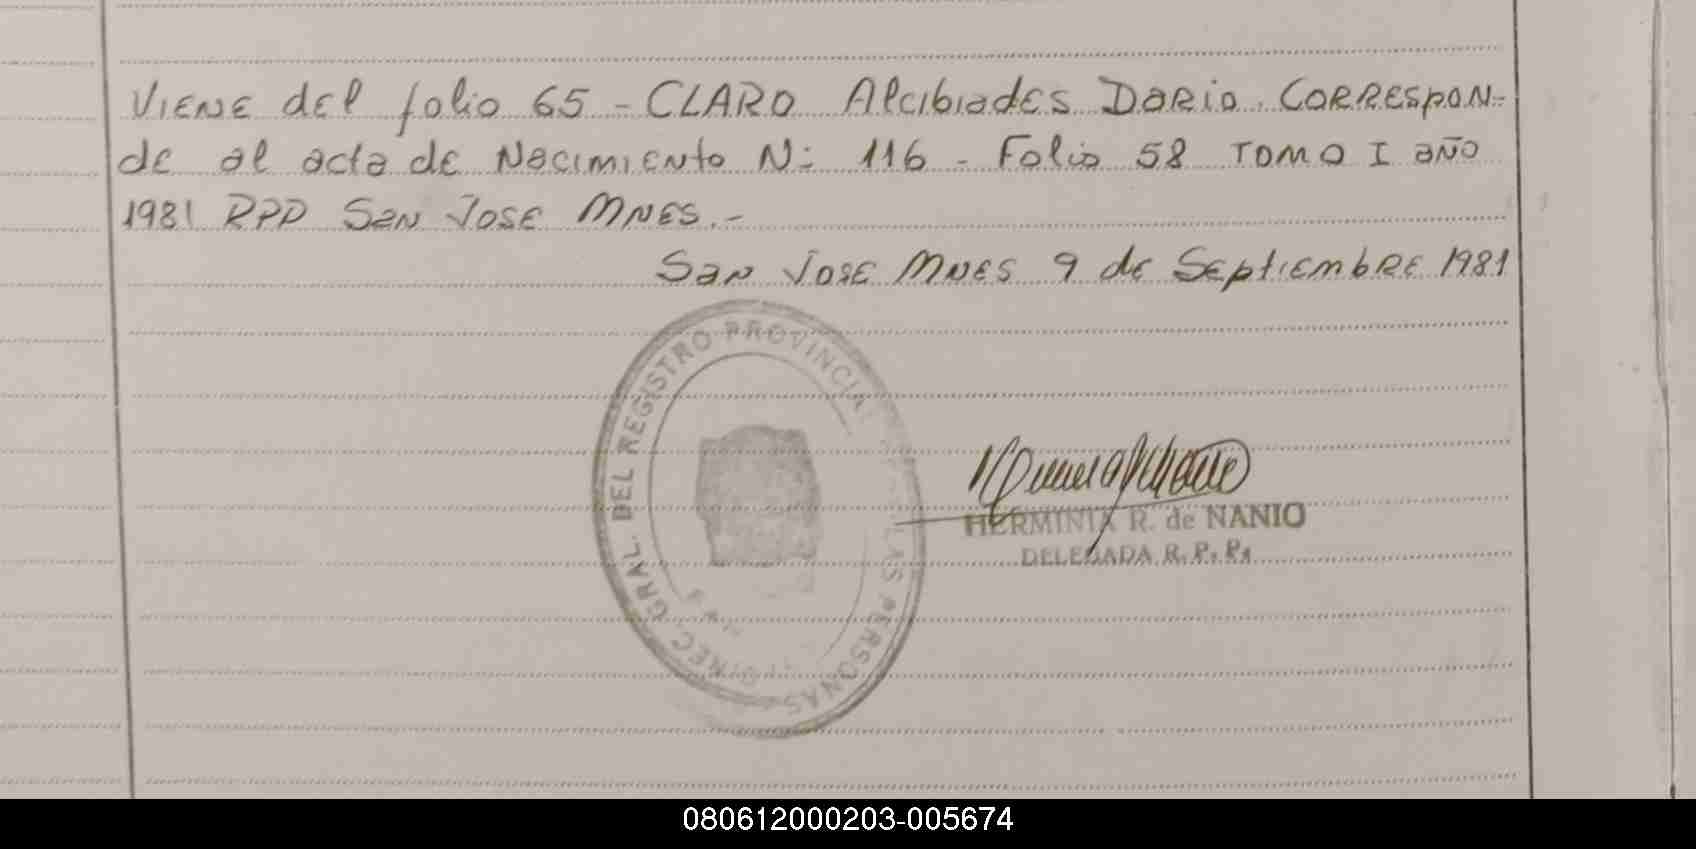 Viene del folio 65 - CLARO Alcibiades Dario. Correspon-
de al acta de Nacimiento N: 116 - Folio 58 Tomo I año
1981 RPP San Jose Mnes.-
San Jose Mnes 9 de Septiembre 1981
DIREC. GRAL. DEL REGISTRO PROVINCIAL LAS PERSONAS
HERMINIA R. de NANIO
DELEGADA R. P. P.
080612000203-005674